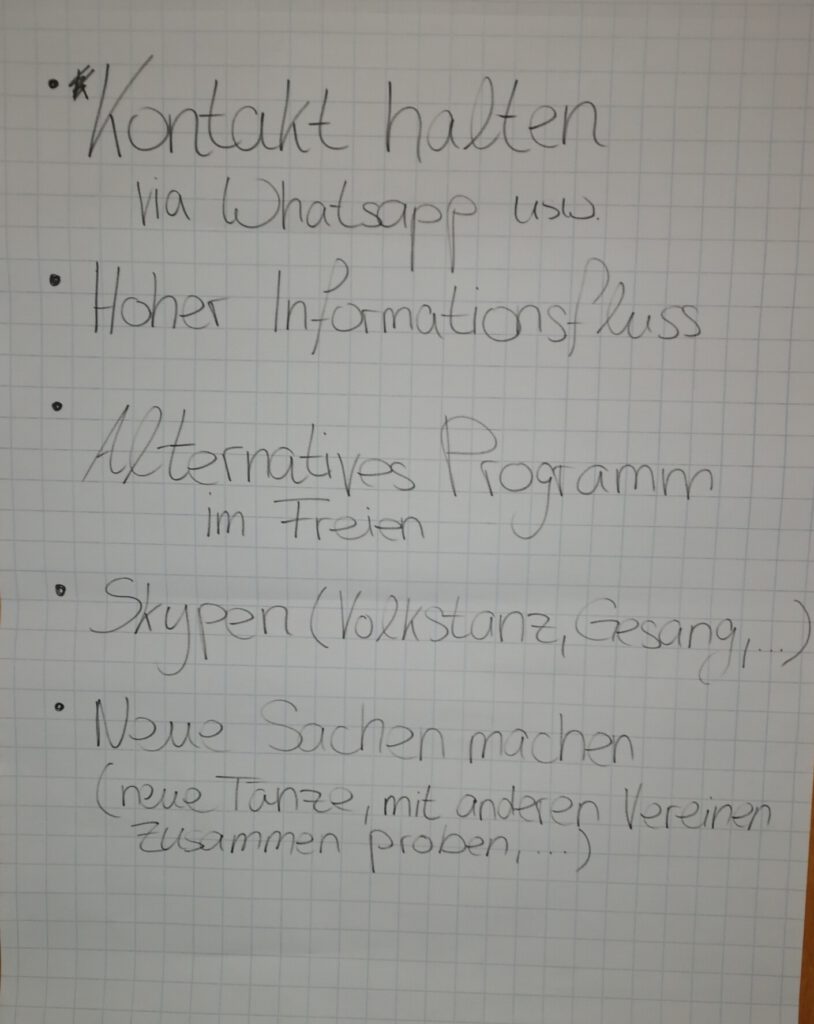 • Kontakt halten
via Whatsapp usw.
• Hoher Informationsfluss
• Alternatives Programm
im Freien
• Skypen (Volkstanz, Gesang,...)
• Neue Sachen machen
(neue Tänze, mit anderen Vereinen
zusammen proben,...)